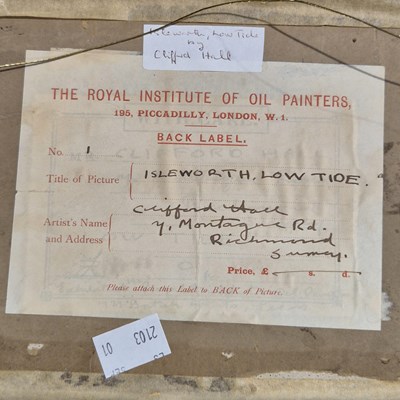 Isleworth, Low Tide
by
Clifford Hall
THE ROYAL INSTITUTE OF OIL PAINTERS,
195, PICCADILLY, LONDON, W. 1.
BACK LABEL.
No. 1
Title of Picture ISLEWORTH, LOW TIDE.
Artist's Name and Address
Clifford Hall
4, Montague Rd.
Richmond
Surrey.
Price, £ s. d.
Please attach this Label to BACK of Picture.
2103
01